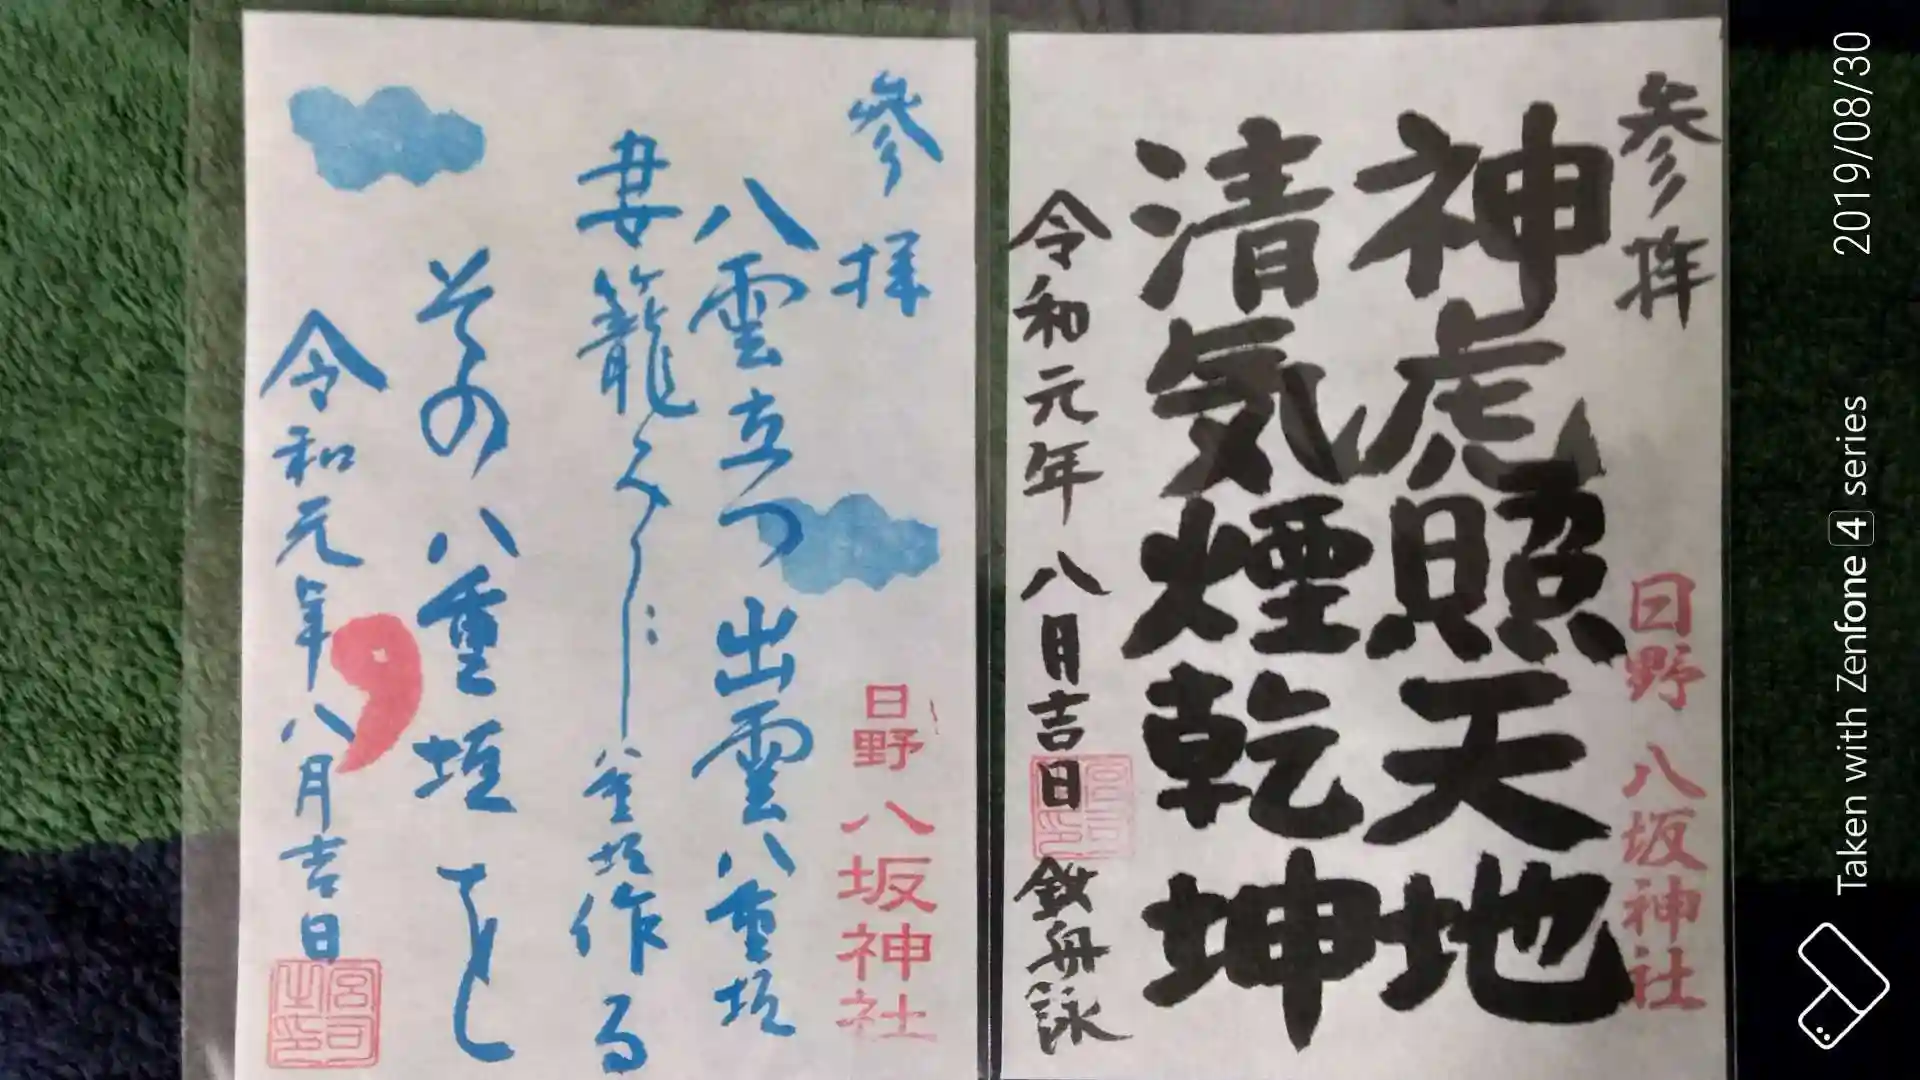 参拝
神虎照天地
清気煙乾坤
令和元年八月吉日
日野 八坂神社
參拝
八雲立つ出雲八重垣
妻籠みに八重垣作る
その八重垣を
令和元年八月吉日
日野八坂神社
宮司之印
2019/08/30
Taken with Zenfone 4 series